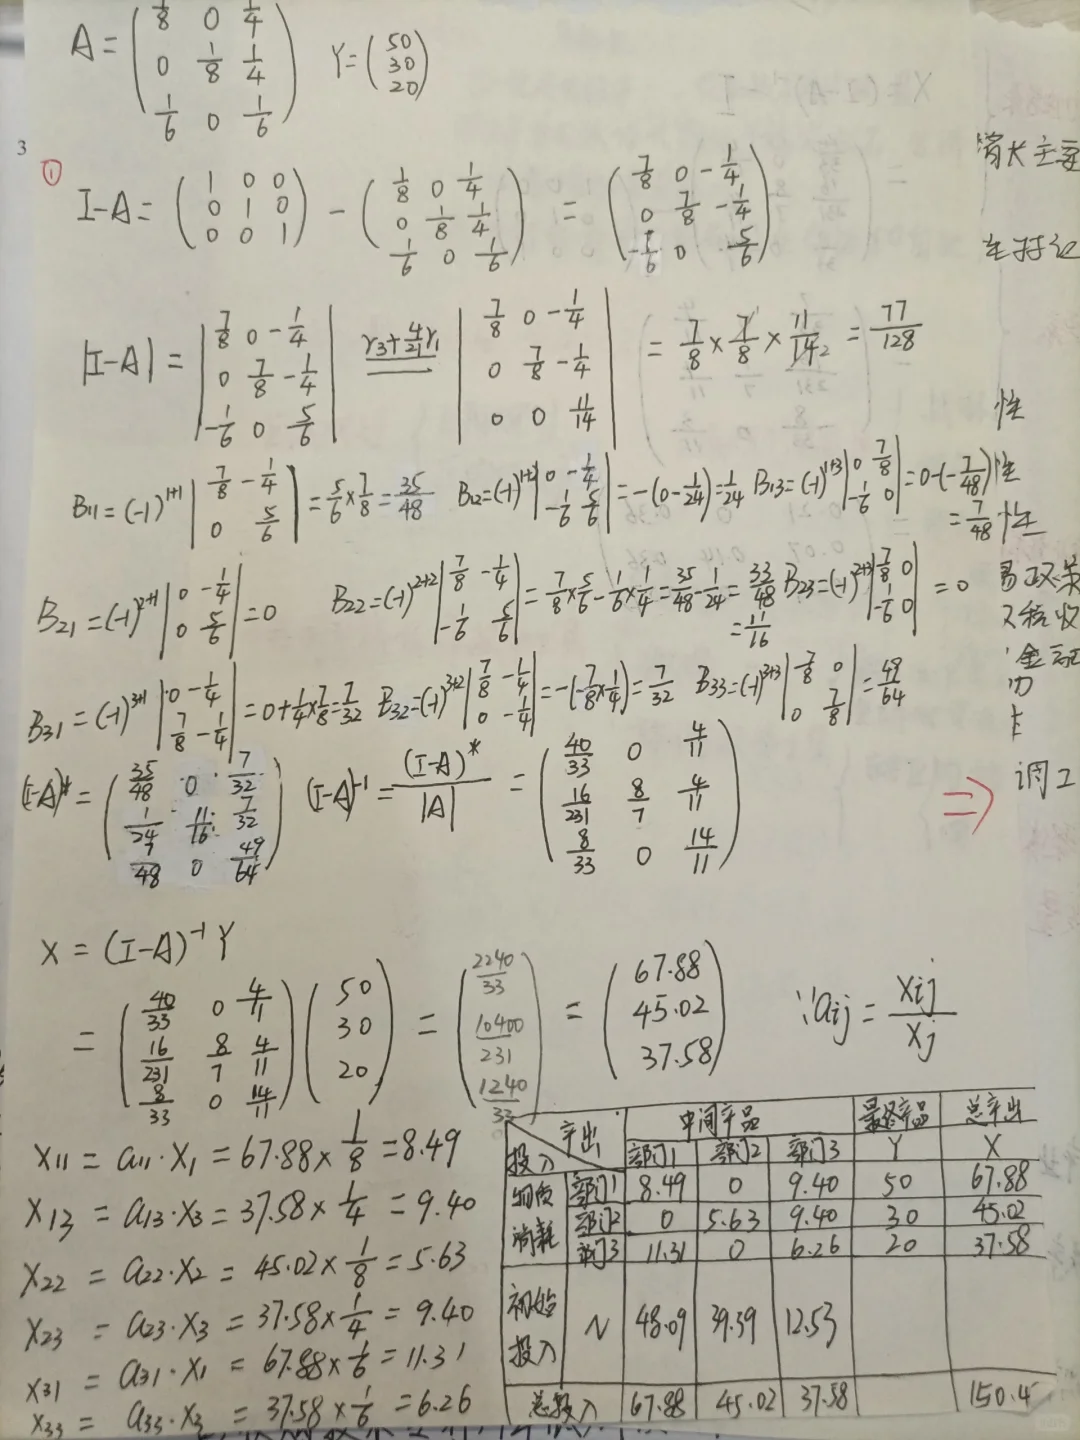 A = ( 1/8 0 1/4 ; 0 1/8 1/4 ; 1/6 0 1/6 ) Y = ( 50 ; 30 ; 20 )
3
①
I-A = ( 1 0 0 ; 0 1 0 ; 0 0 1 ) - ( 1/8 0 1/4 ; 0 1/8 1/4 ; 1/6 0 1/6 ) = ( 7/8 0 -1/4 ; 0 7/8 -1/4 ; -1/6 0 5/6 )
|I-A| = | 7/8 0 -1/4 ; 0 7/8 -1/4 ; -1/6 0 5/6 | r3+4/21 r1 | 7/8 0 -1/4 ; 0 7/8 -1/4 ; 0 0 11/14 | = 7/8 × 7/8 × 11/14 = 77/128
B11=(-1)^1+1 | 7/8 -1/4 ; 0 5/6 | = 5/6 × 7/8 = 35/48 B12=(-1)^1+2 | 0 -1/4 ; -1/6 5/6 | = -(0-1/24) = 1/24 B13=(-1)^1+3 | 0 7/8 ; -1/6 0 | = 0-(-7/48)
= 7/48
B21=(-1)^2+1 | 0 -1/4 ; 0 5/6 | = 0 B22=(-1)^2+2 | 7/8 -1/4 ; -1/6 5/6 | = 7/8×5/6 - 1/6×1/4 = 35/48 - 1/24 = 33/48 B23=(-1)^2+3 | 7/8 0 ; -1/6 0 | = 0
= 11/16
B31=(-1)^3+1 | 0 -1/4 ; 7/8 -1/4 | = 0+1/4×7/8=7/32 B32=(-1)^3+2 | 7/8 -1/4 ; 0 -1/4 | = -(-7/8×1/4)=7/32 B33=(-1)^3+3 | 7/8 0 ; 0 7/8 | = 49/64
(I-A)* = ( 35/48 0 7/32 ; 1/24 11/16 7/32 ; 7/48 0 49/64 ) (I-A)^-1 = (I-A)*/|A| = ( 40/33 0 4/11 ; 16/231 8/7 4/11 ; 8/33 0 14/11 )
X = (I-A)^-1 Y
= ( 40/33 0 4/11 ; 16/231 8/7 4/11 ; 8/33 0 14/11 ) ( 50 ; 30 ; 20 ) = ( 2240/33 ; 10400/231 ; 1240/33 ) = ( 67.88 ; 45.02 ; 37.58 ) ∵aij = xij/xj
X11 = a11·X1 = 67.88×1/8 = 8.49
X13 = a13·X3 = 37.58×1/4 = 9.40
X22 = a22·X2 = 45.02×1/8 = 5.63
X23 = a23·X3 = 37.58×1/4 = 9.40
X31 = a31·X1 = 67.88×1/6 = 11.31
X33 = a33·X3 = 37.58×1/6 = 6.26
产出 中间产品 最终产品 总产出
投入 部门1 部门2 部门3 Y X
物质 部门1 8.49 0 9.40 50 67.88
消耗 部门2 0 5.63 9.40 30 45.02
部门3 11.31 0 6.26 20 37.58
初始投入 N 48.09 39.39 12.53
总投入 67.88 45.02 37.58 150.4
性
性
性
⇒
调工